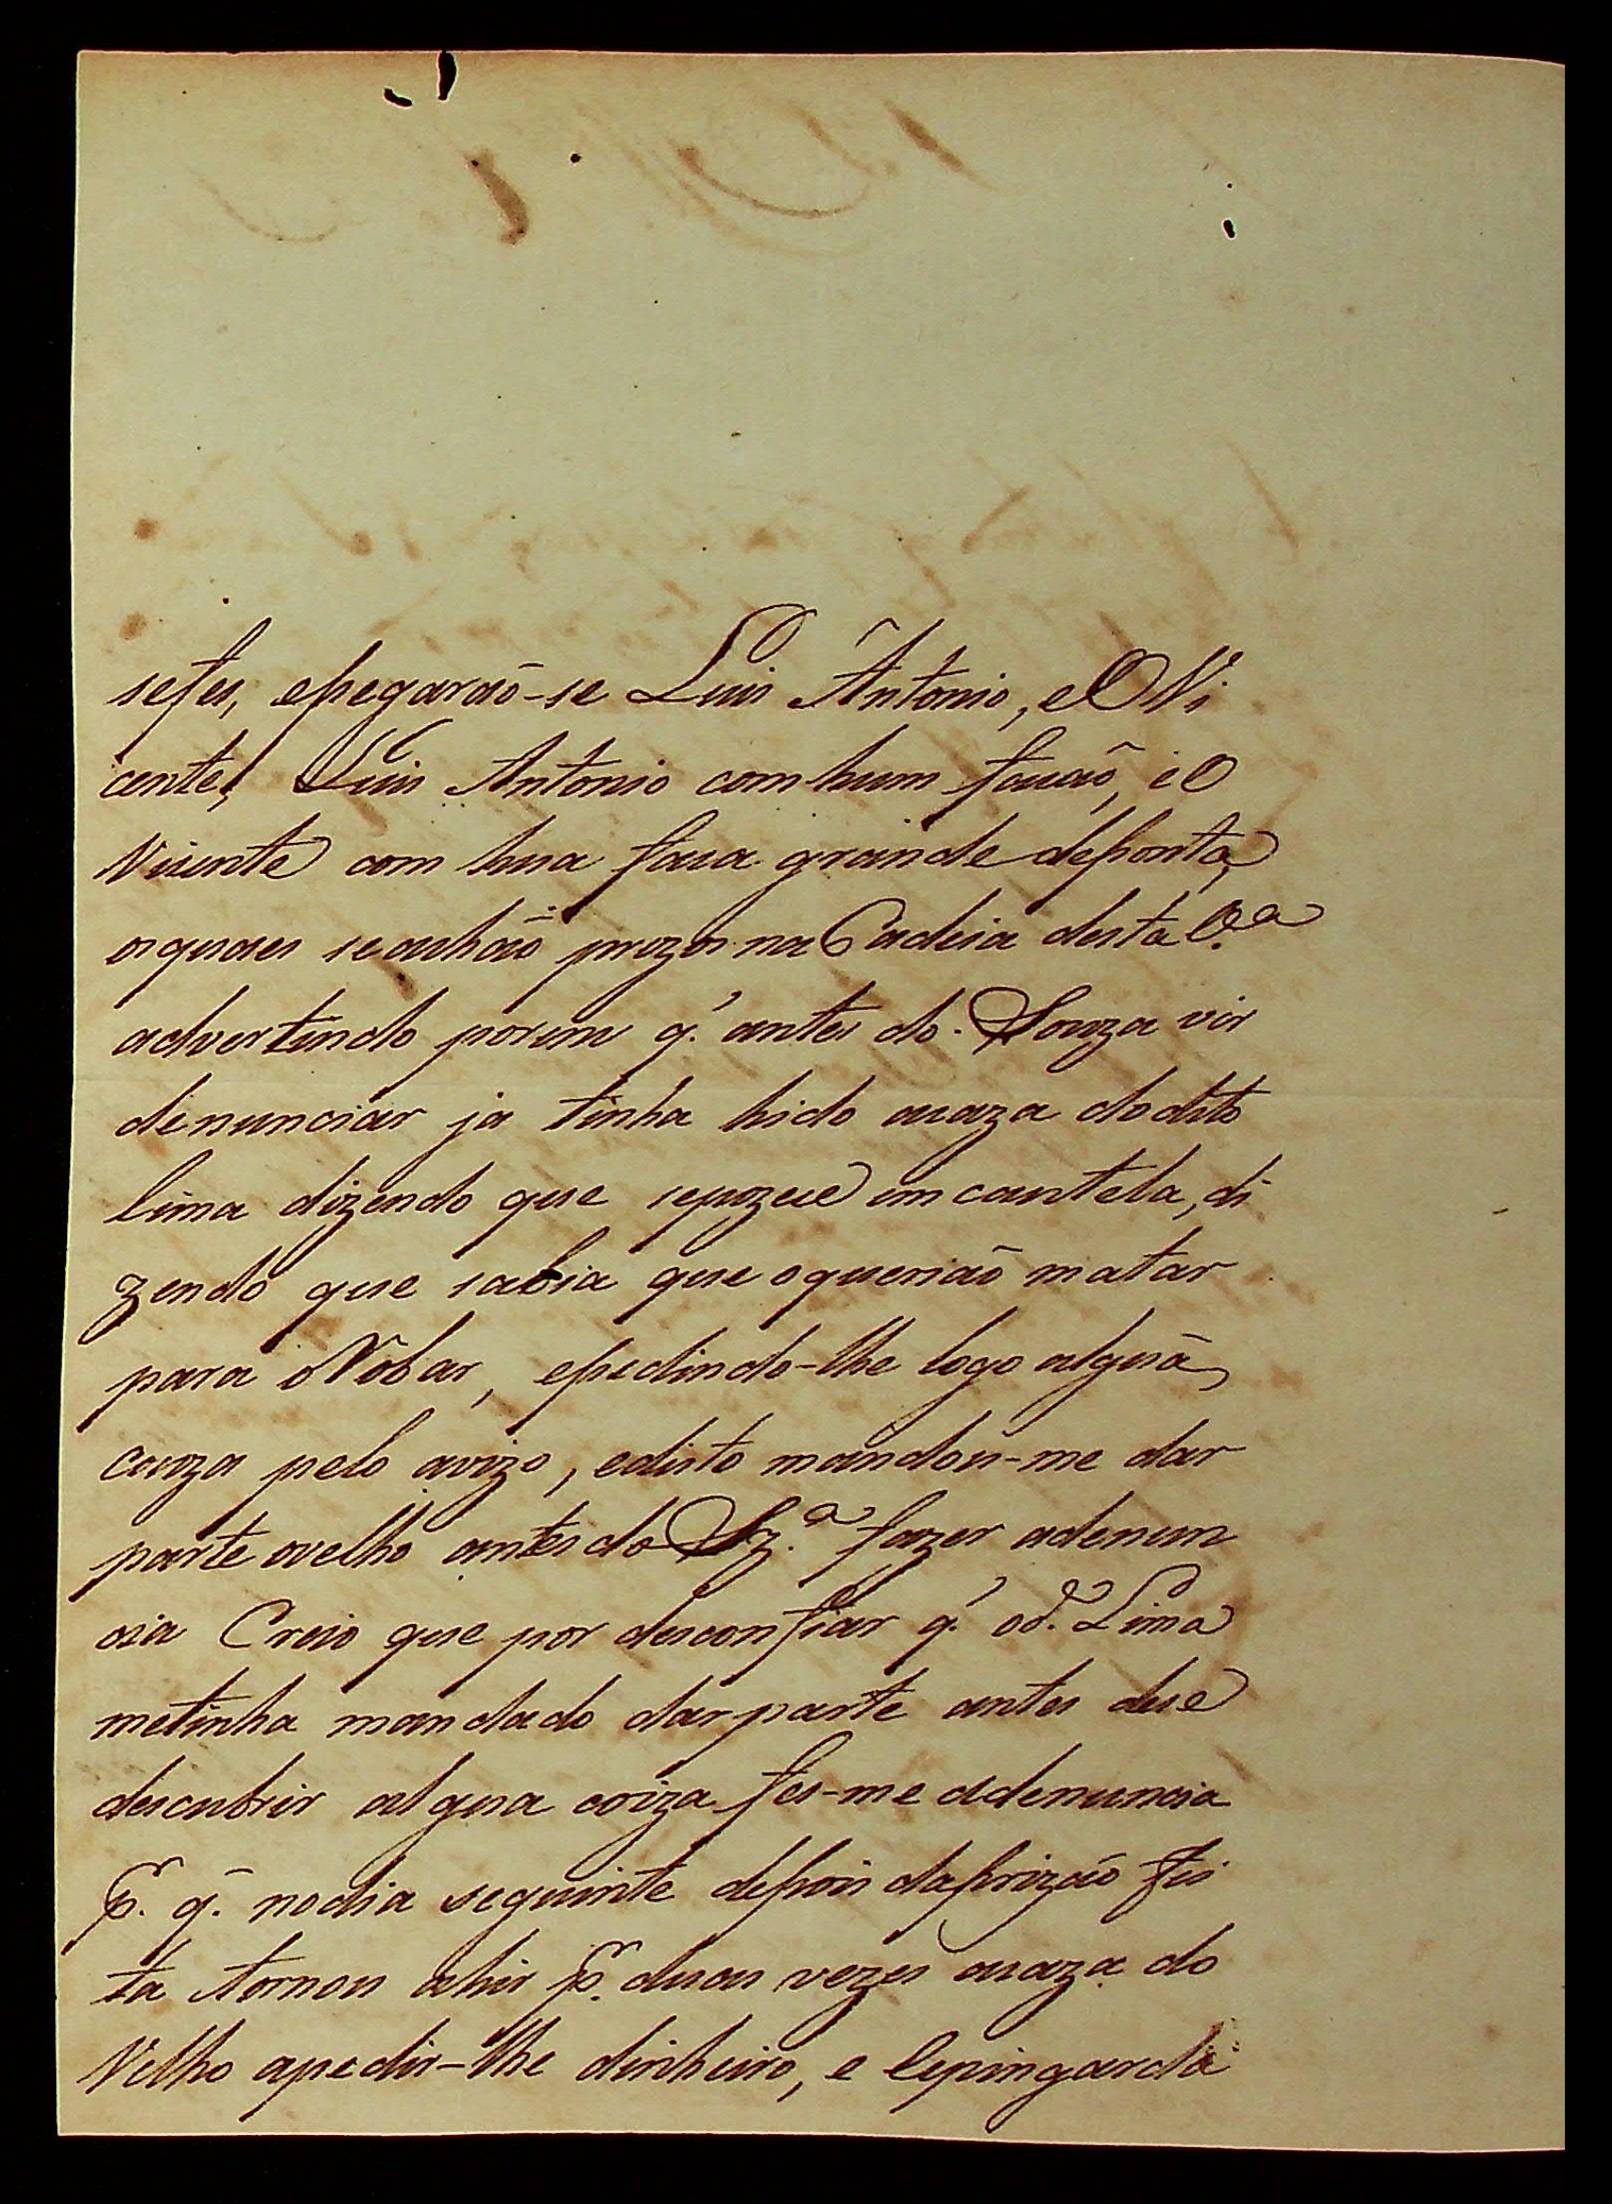 sefes, epegaraõ-se Luis Antonio, e O Vi
cente, Luis Antonio com hum facaõ, e O
Vicente com hua faca grande deponta,
osquaes seachaõ prezos na Cadeia desta V.ª
advertindo porem q.' antes do Souza vir
denunciar ja tinha hido acaza dodito
Lima dizendo que sepozece em cautela, di
zendo que sabia que oqueriaõ matar
para o Robar, epedindo-lhe logo alguã
couza pelo avizo, edisto mandou-me dar
parte ovelho antes do Sz.ª fazer adenun
cia Creio que por desconfiar q.' od.º Lima
metinha mandado dar parte antes dese
descubrir algua coiza fes-me adenuncia
p. q. nodia seguinte depois daprizaõ fei
ta tornou ahir p. duas vezes acaza do
Velho apedir-lhe dinheiro, e Espingarda